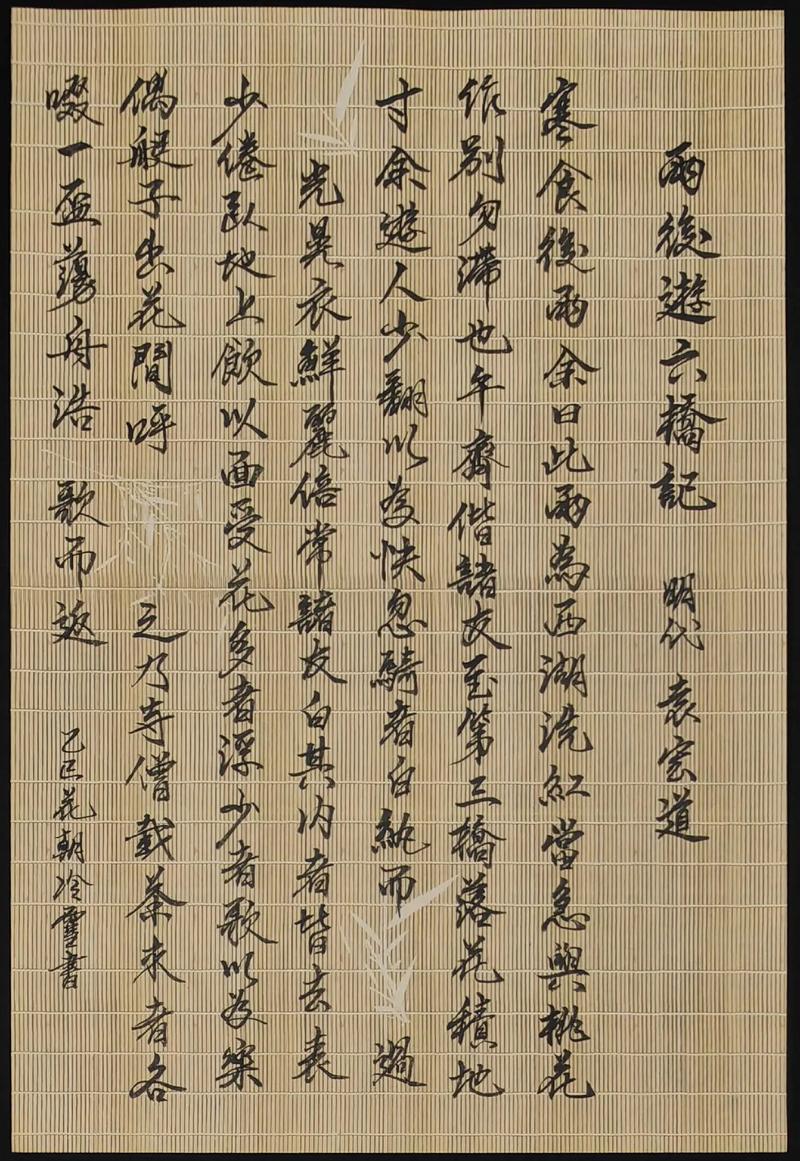 雨後遊六橋記 明代袁宏道
寒食後雨余曰此雨為西湖洗紅當急與桃花
作別勿滯也午霽偕諸友至第三橋落花積地
寸余遊人少翻以為快忽騎者白紈而 過
光晃衣鮮麗倍常諸友白其內者皆去表
少倦臥地上飲以面受花多者浮少者歌以為樂
偶艇子出花間呼 之乃寺僧載茶來者各
啜一盃蕩舟浩 歌而返 乙巳花朝冷雪書